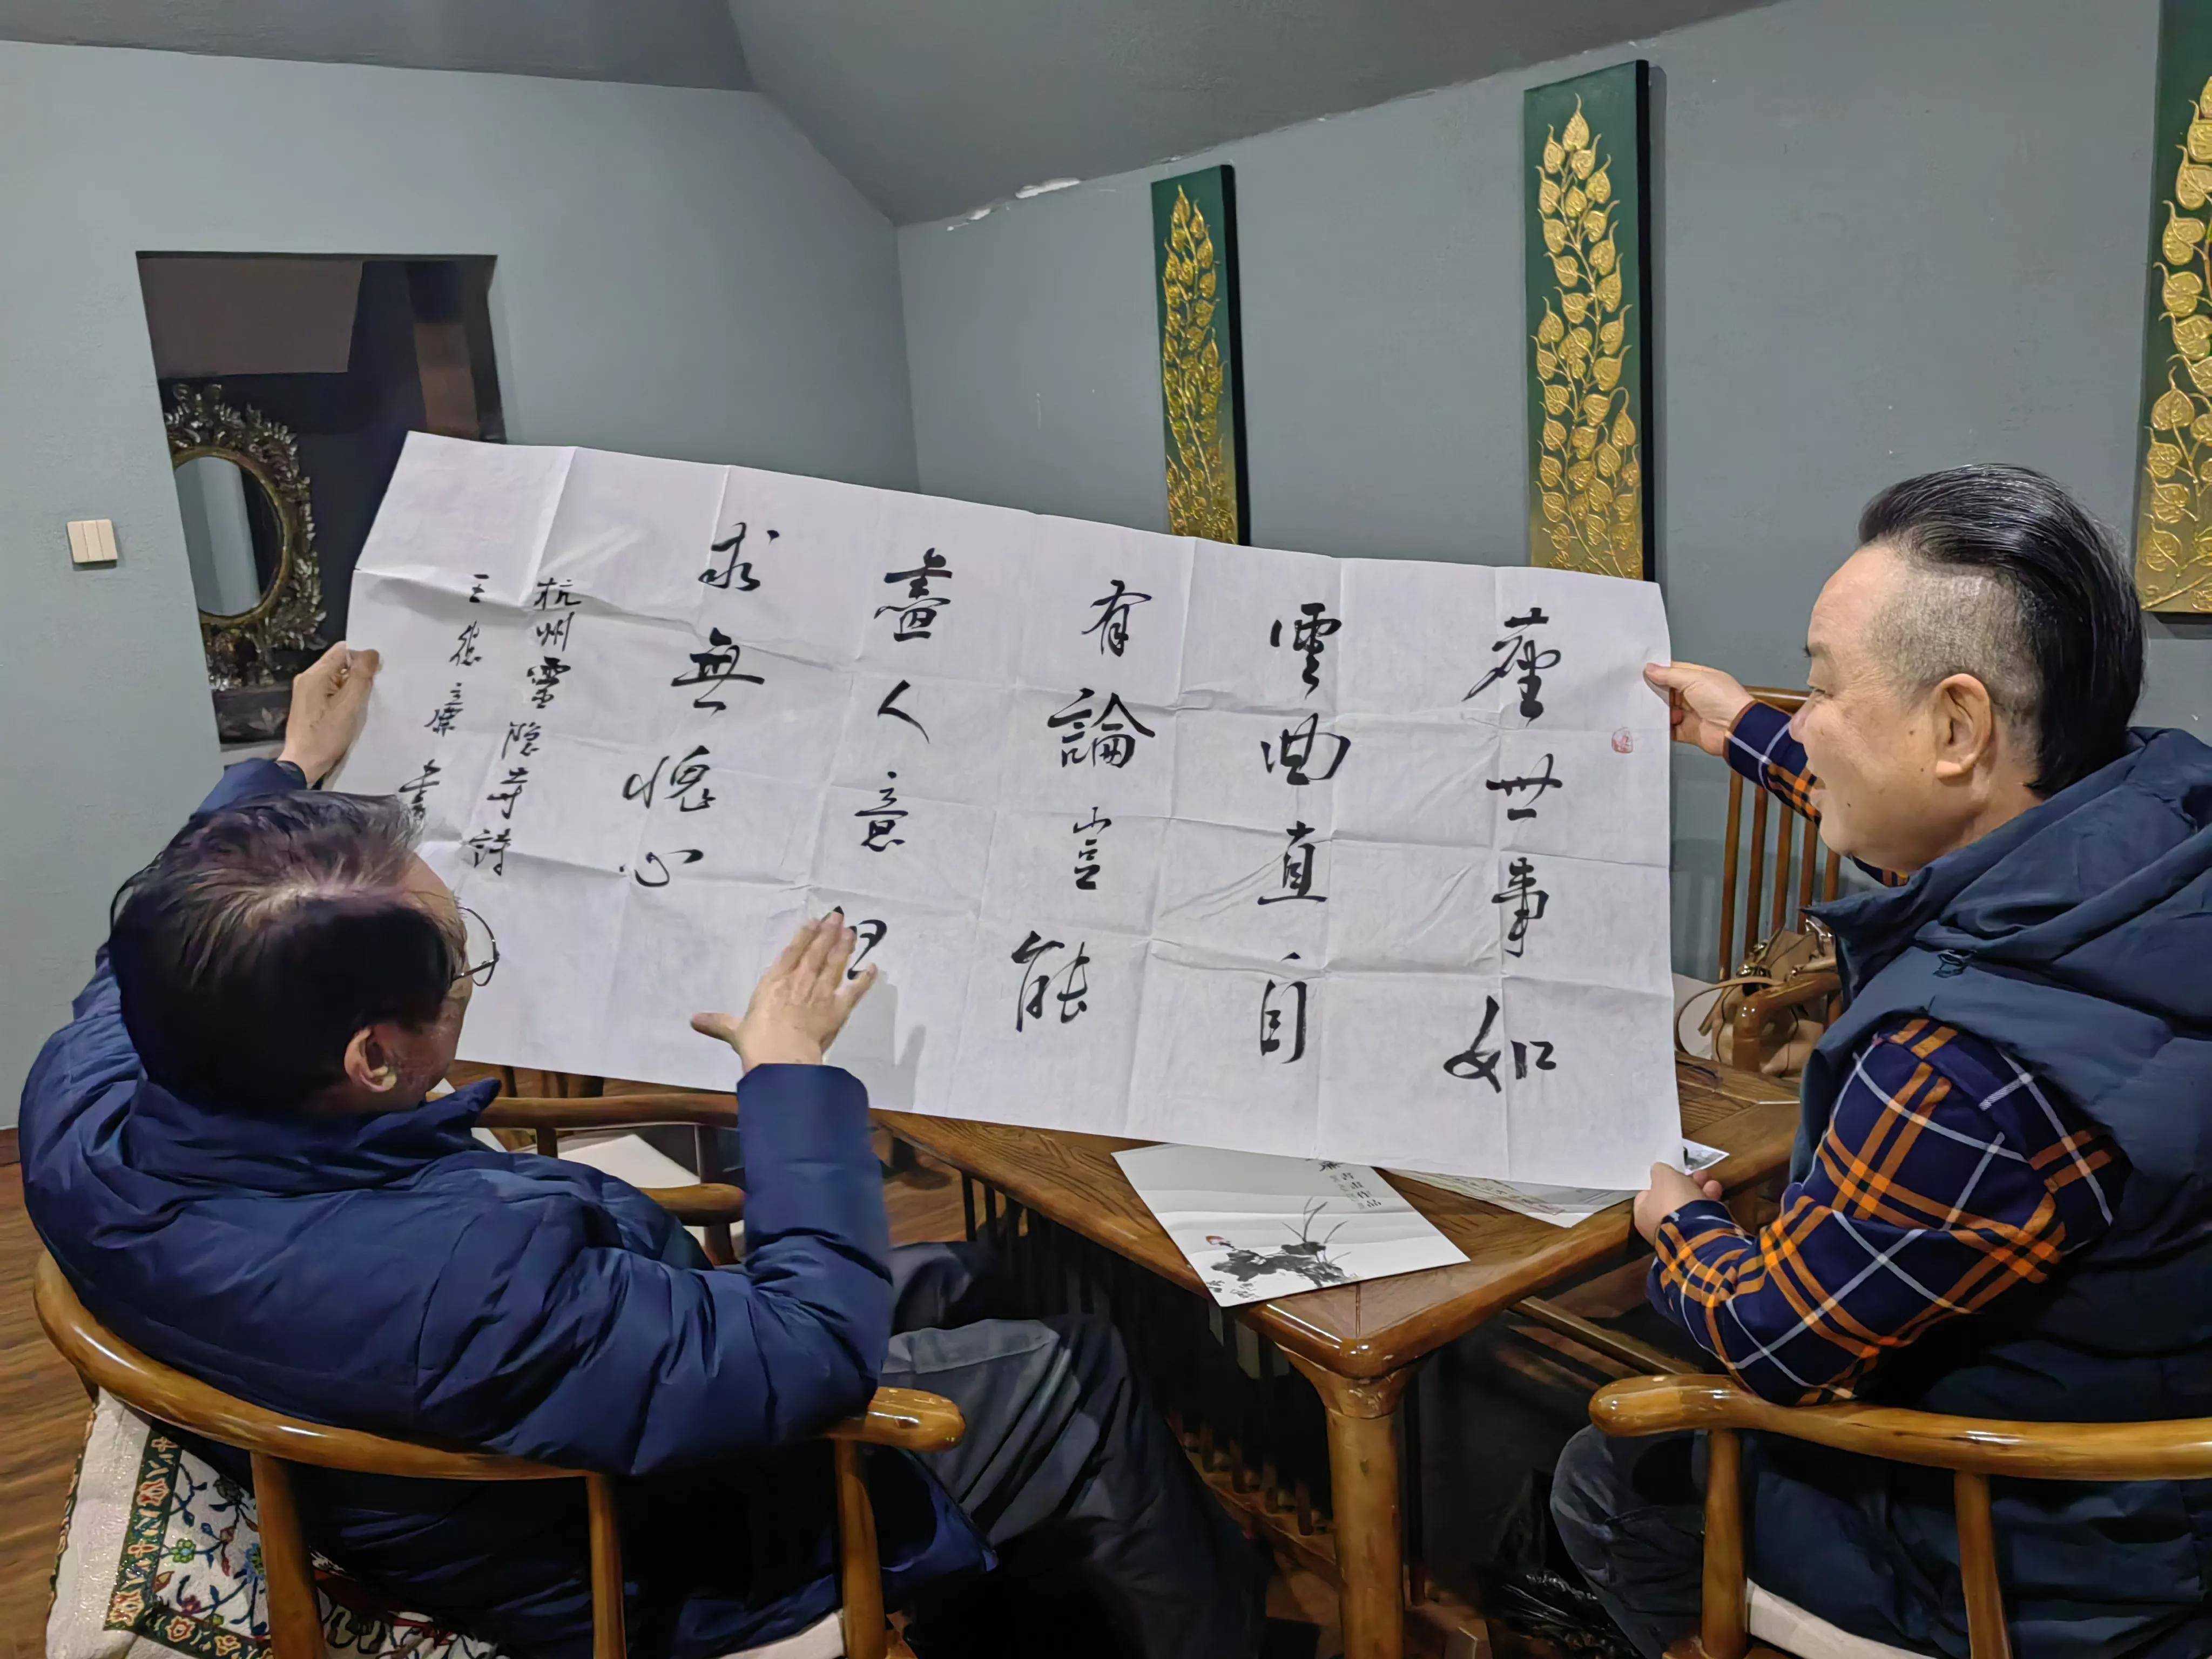 塵世事如
雲曲直自
有論豈能
盡人意但
求無愧心
杭州靈隐寺詩
書